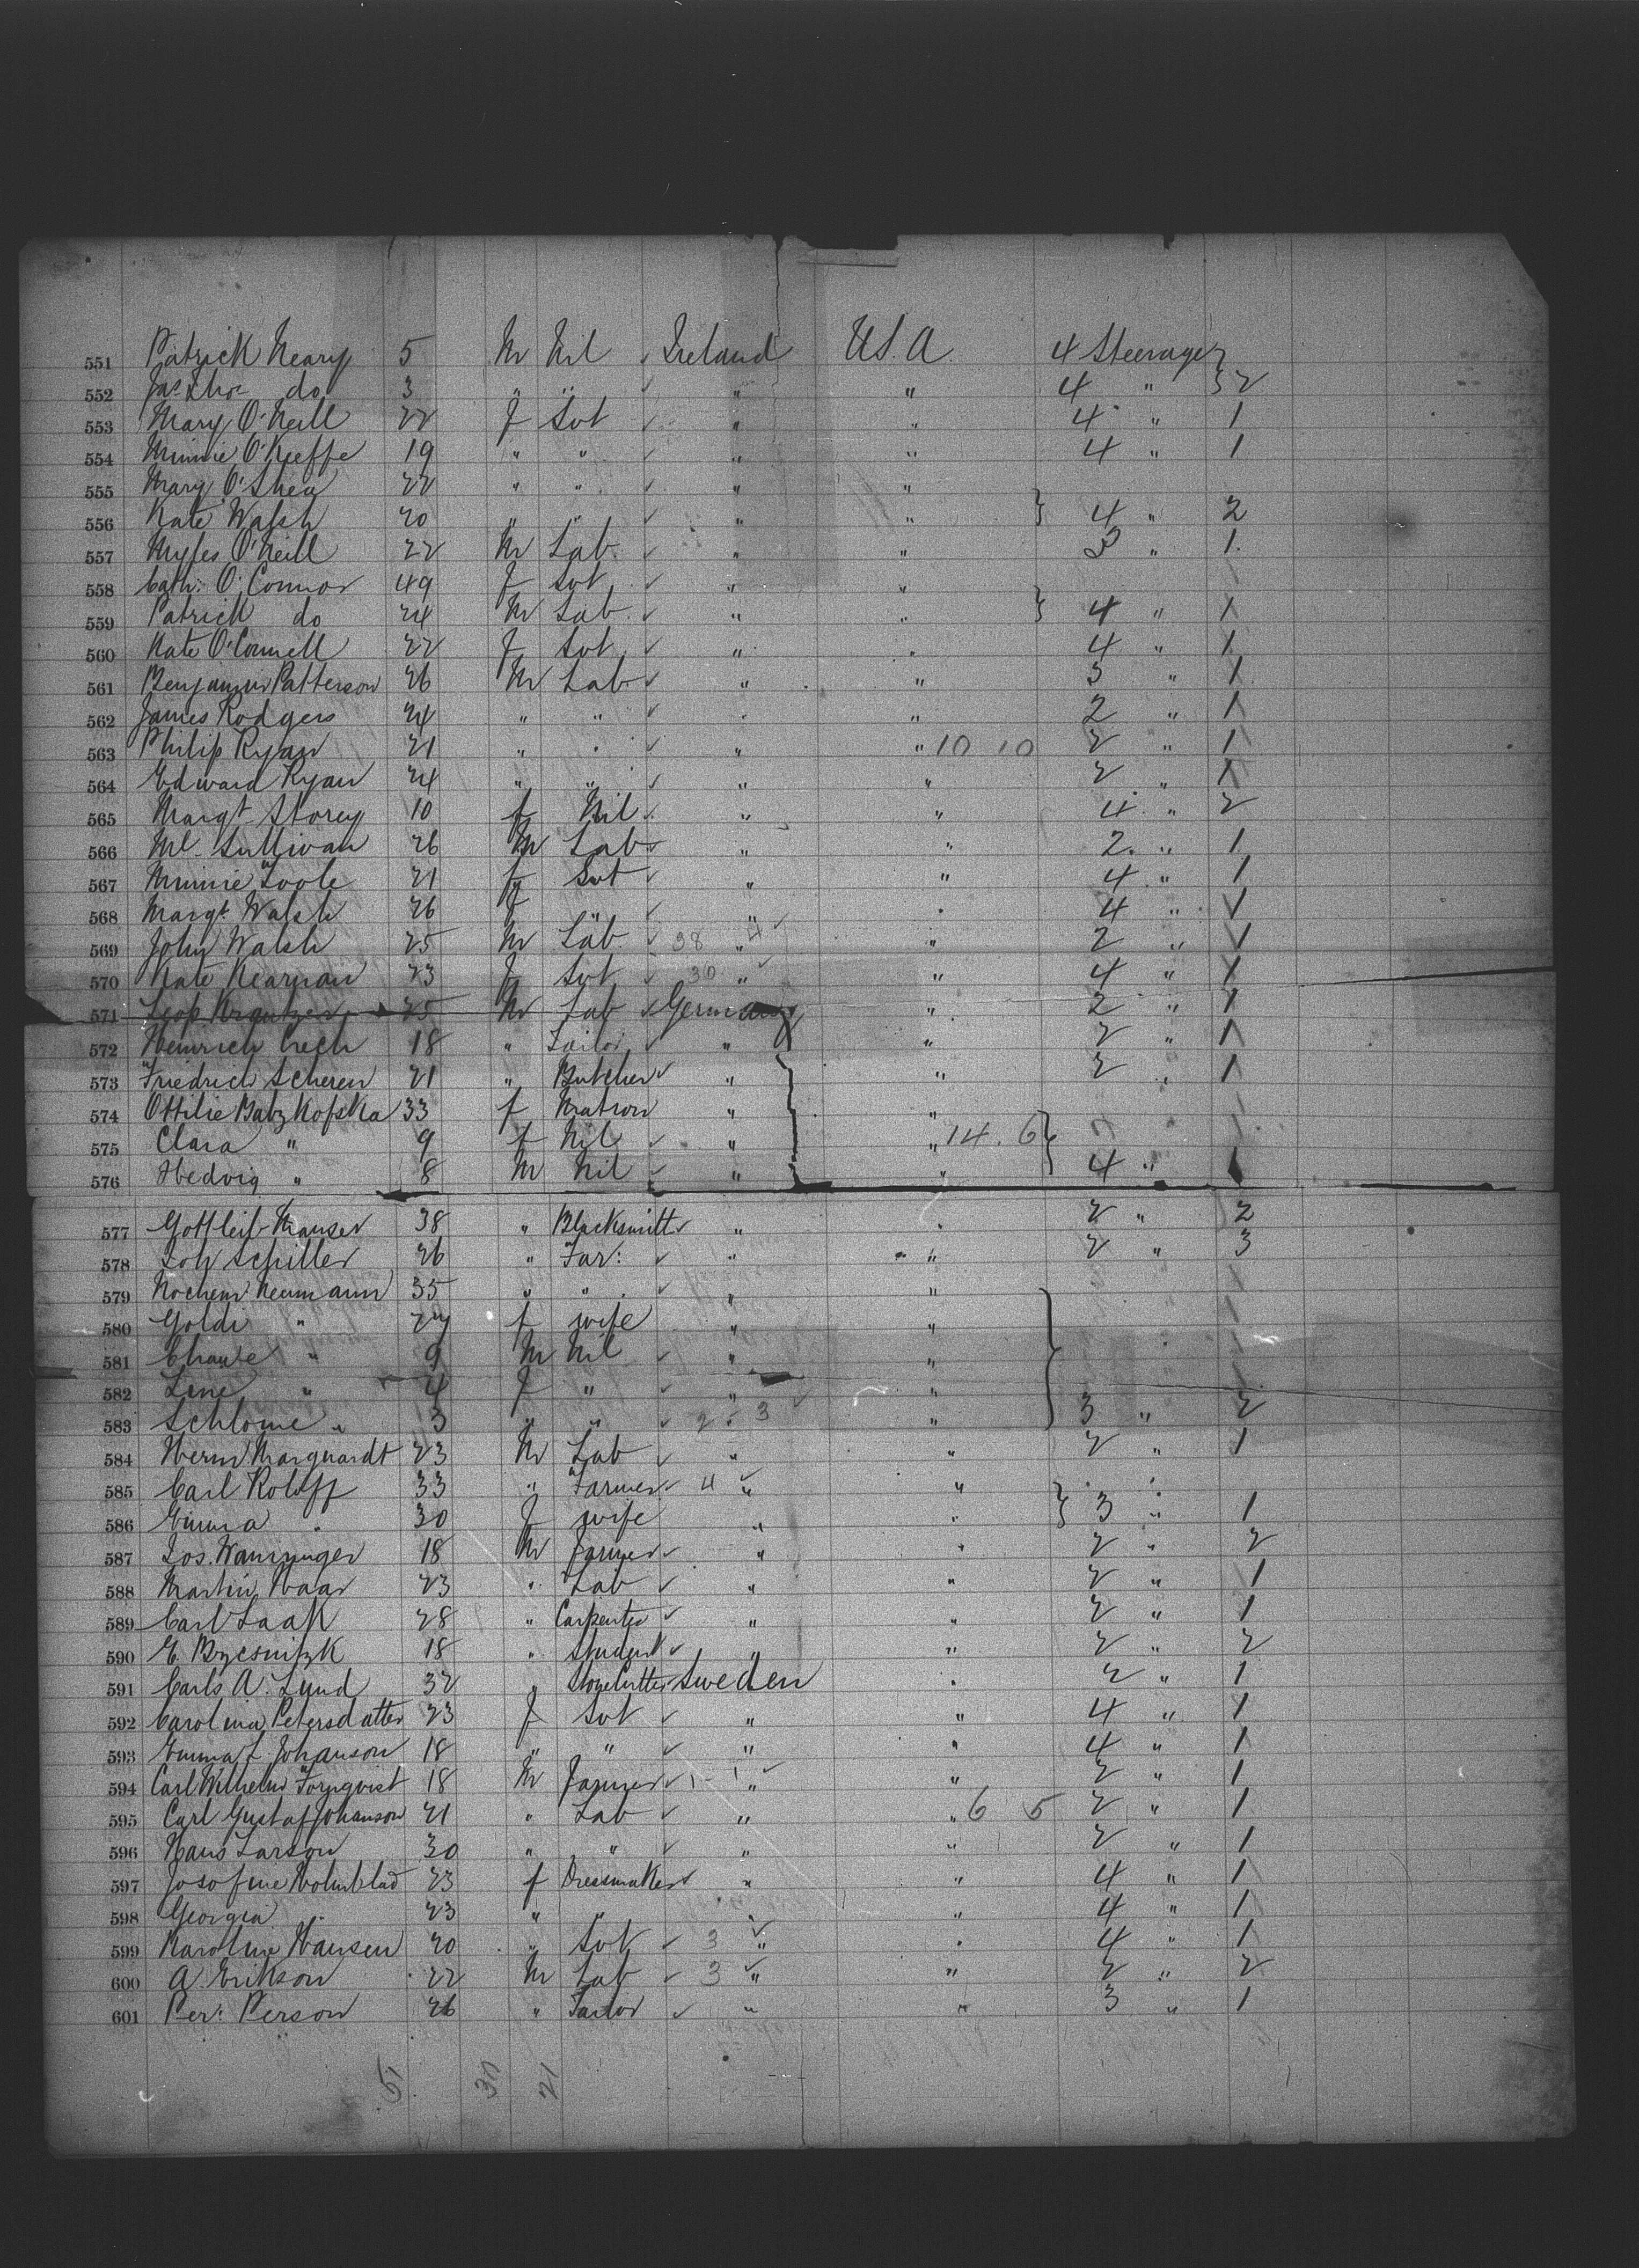 551 Patrick Neary 5 M Nil Ireland U.S.A. 4 Steerage
552 do 3 " " " " 4 " 2
553 Mary O'Neill 22 f Svt " " 4 " 1
554 Minnie O'Keeffe 19 " " " " 4 " 1
555 Mary O'Shea 22 " " " "
556 Kate Walsh 20 " " " " } 4 " 2
557 Myles O'Neill 22 M Lab. " " 3 " 1
558 Cath: O'Connor 49 f Svt " "
559 Patrick do 24 M Lab. " " } 4 " 1
560 Kate O'Connell 22 f Svt " " 4 " 1
561 Benjamin Patterson 26 M Lab " " 3 " 1
562 James Rodgers 24 " " " " 2 " 1
563 Philip Ryan 21 " " " " 10 10 2 " 1
564 Edward Ryan 24 " " " " 2 " 1
565 Margt Storey 10 f Nil " " 4 " 2
566 Ml. Sullivan 26 M Lab " " 2 " 1
567 Minnie Toole 21 f Svt " " 4 " 1
568 Margt Walsh 26 f " " " 4 " 1
569 John Walsh 25 M Lab. 38 " 4 " 2 " 1
570 Kate Kearnan 23 f Svt 30 " " 4 " 1
571 Leop 25 M Lab Germany " 2 " 1
572 Heinrich 18 " Tailor " " 2 " 1
573 Friedrich Scheren 21 " Butcher " " 2 " 1
574 Ottilie Batzkofska 33 f Matron " "
575 Clara " 9 f Nil " " 14. 6
576 Hedvig " 8 M Nil " " } 4 " 1
577 Gottleib 38 " Blacksmith " " 2 " 2
578 Joh Schiller 26 " Far: " " 2 " 3
579 Nochem Neumann 35 " " " "
580 Goldi " f wife " "
581 " 9 M Nil " "
582 Line " 4 f " " "
583 Schlome " 3 " " 2 " 3 " } 3 " 2
584 Herm Marquardt 23 M Lab " " 2 " 1
585 Carl Roloff 33 " Farmer 4 " "
586 Emma " 30 f wife " " } 3 " 1
587 Jos. 18 M Farmer " " 2 " 2
588 Martin Haas 23 " Lab " " 2 " 1
589 Carl Laak 28 " Carpenter " " 2 " 1
590 E. 18 " Student " " 2 " 2
591 Carls A. Lund 32 " Stonecutter Sweden " 2 " 1
592 Carolina Petersdatter 23 f Svt " " 4 " 1
593 Emma f. Johanson 18 " " " " 4 " 1
594 Carl Wilhelm Törnqvist 18 M Farmer 1 - 1 " " 2 " 1
595 Carl Gustaf Johanson 21 " Lab " " 6 5 2 " 1
596 Hans Larson 30 " " " " 2 " 1
597 Josofine Holmblad 23 f Dressmaker " " 4 " 1
598 Georgia " 23 " " " " 4 " 1
599 Karoline Hansen 20 " Svt 3 " " 4 " 1
600 A. Erikson 22 M Lab 3 " " 2 " 2
601 Per: Person 26 " Tailor " " 3 " 1
51 30 21